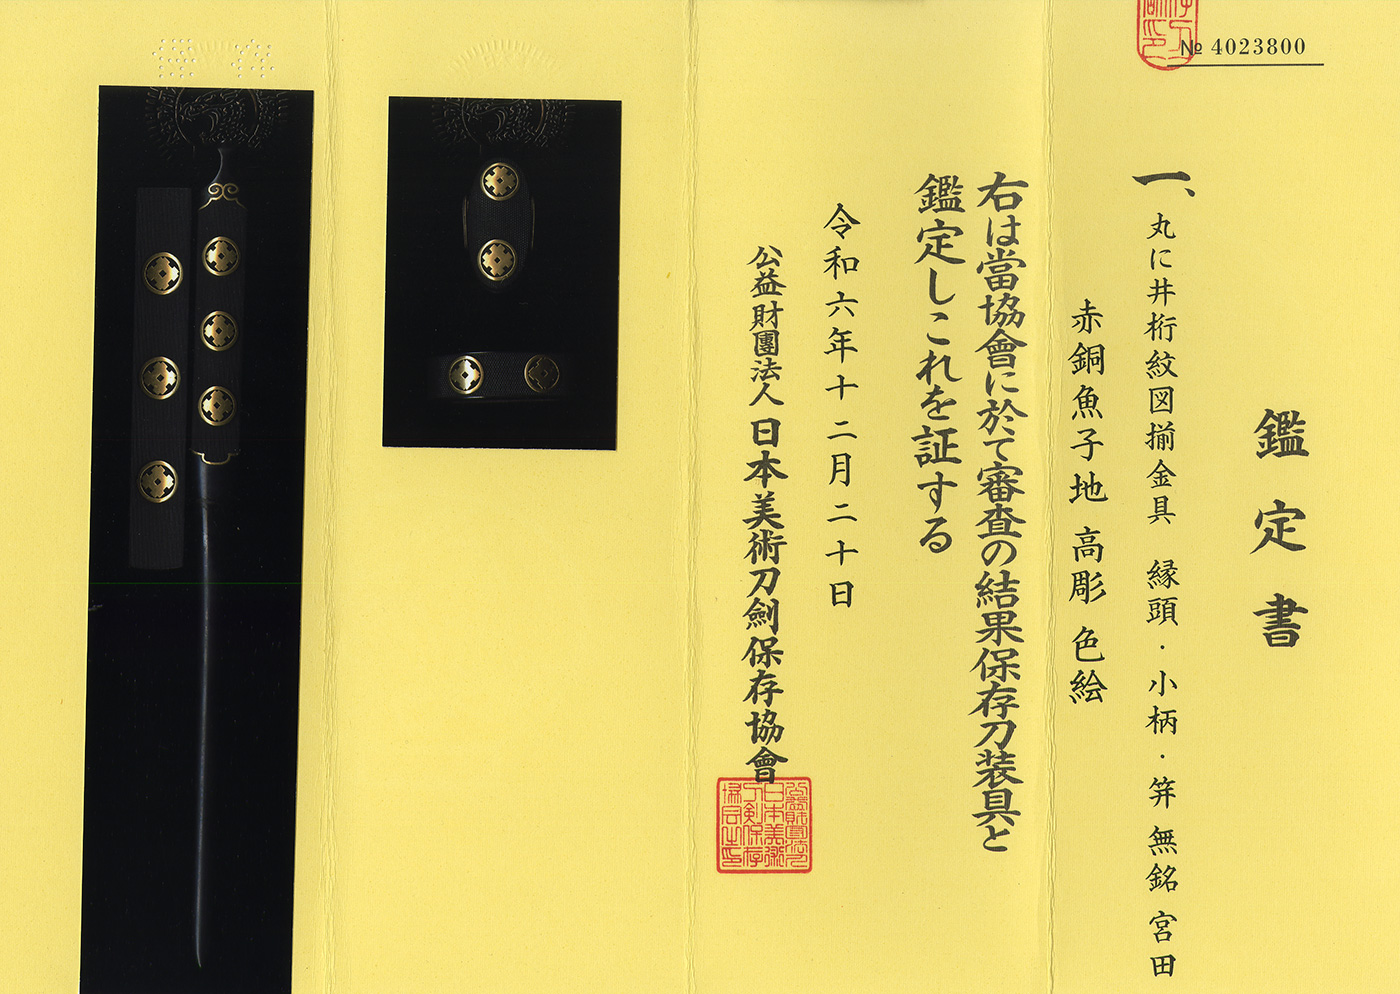 № 4023800
鑑定書
一、丸に井桁紋図揃金具 縁頭・小柄・笄 無銘 宮田
赤銅魚子地 高彫 色絵
右は當協會に於て審査の結果保存刀装具と
鑑定しこれを証する
令和六年十二月二十日
公益財團法人 日本美術刀劍保存協會